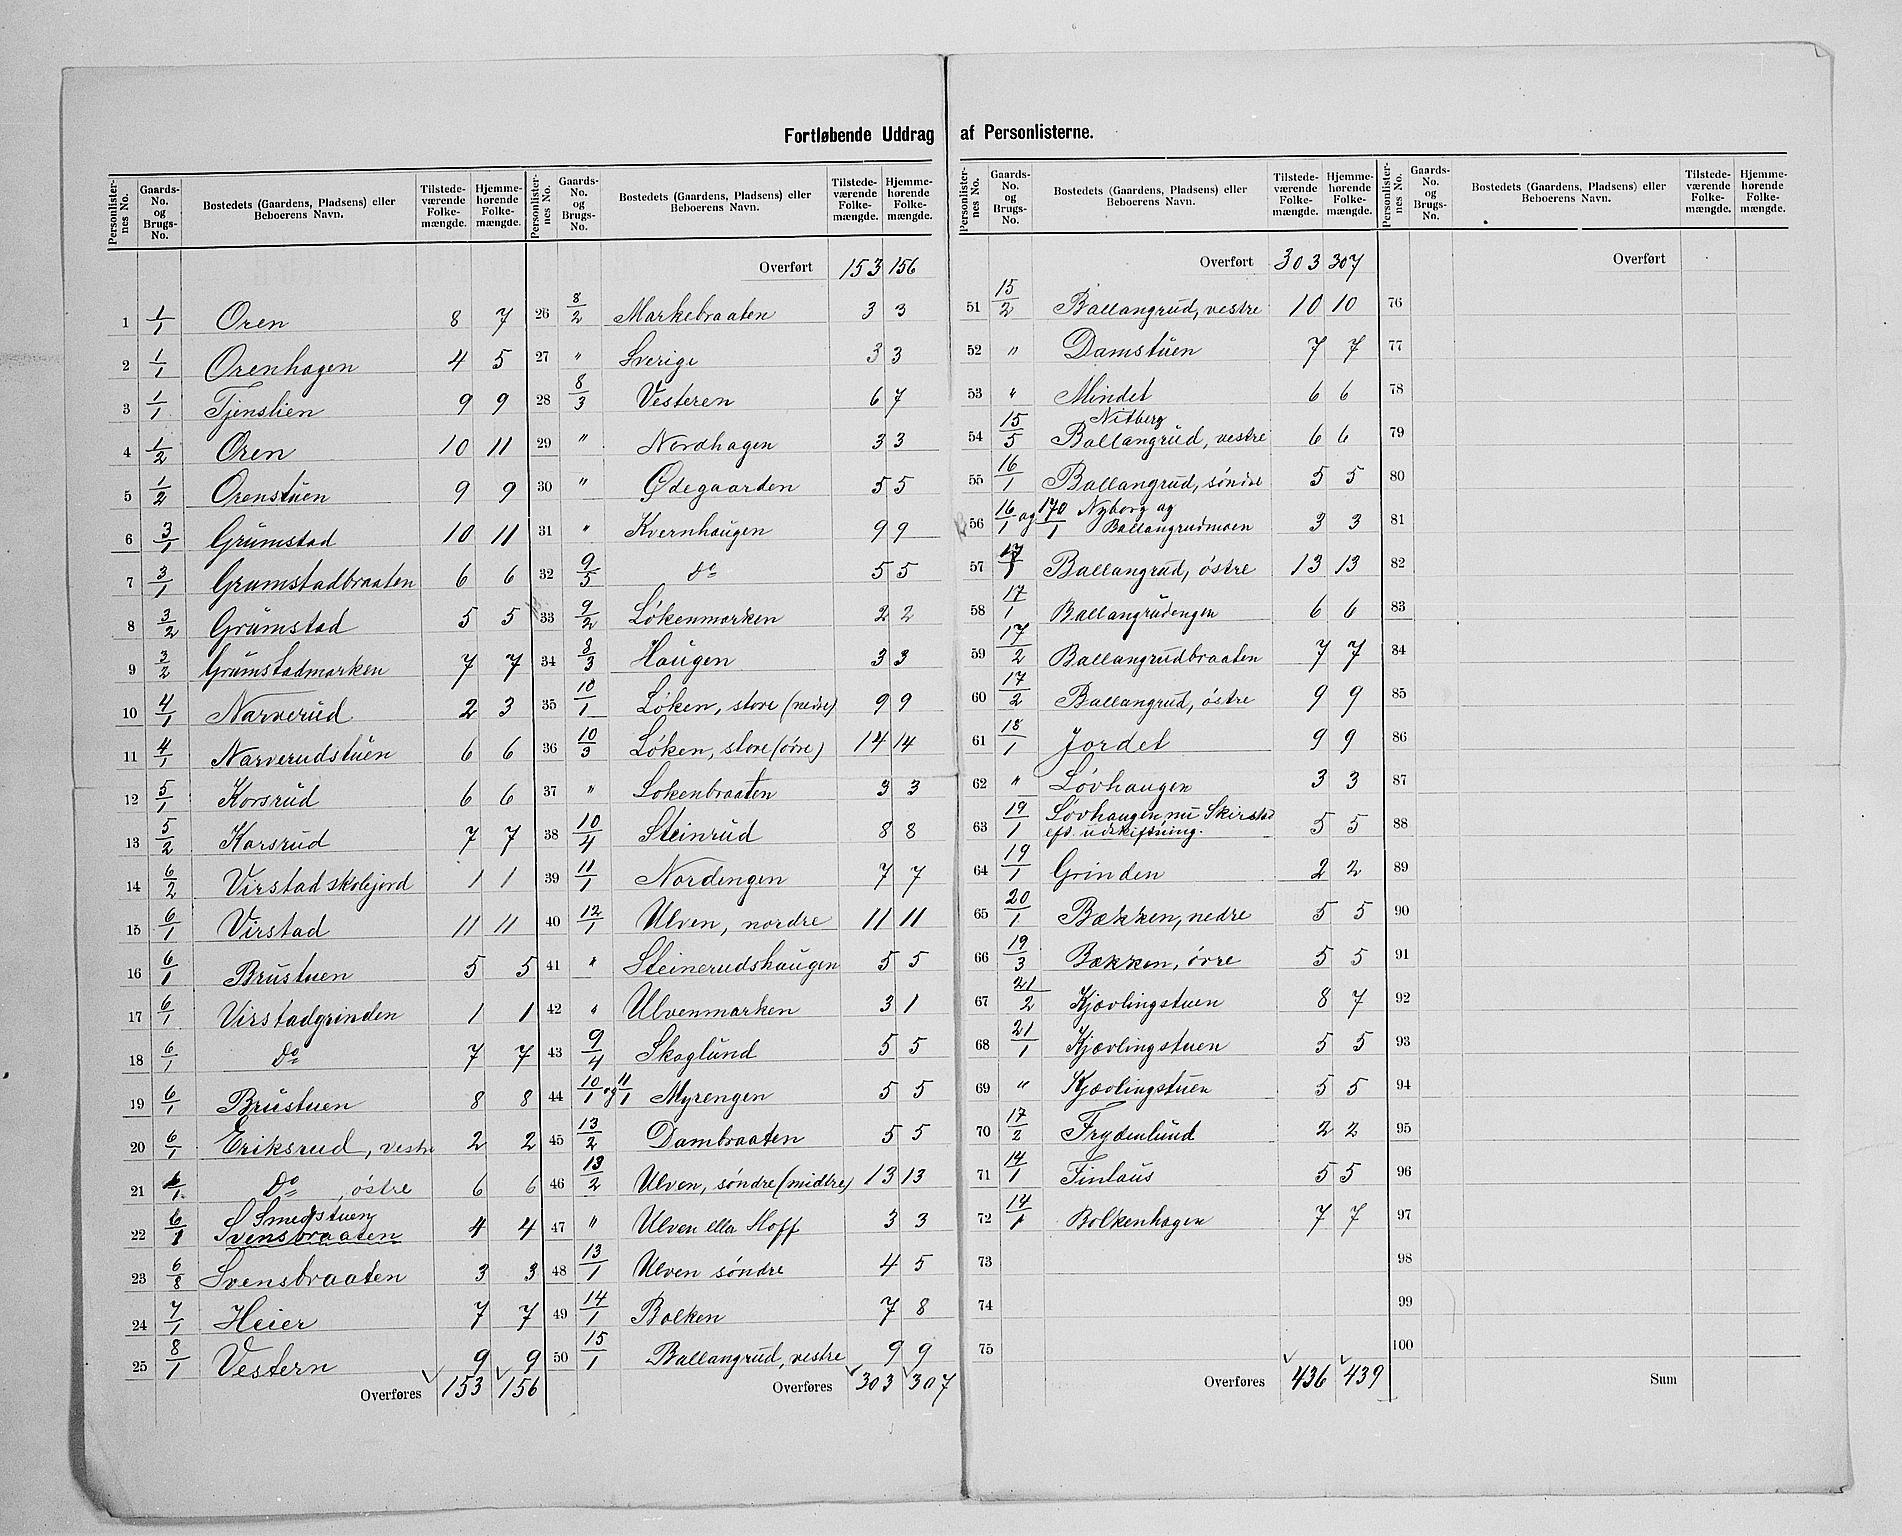 Fortløbende Uddrag af Personlisterne.
Personlisternes No. | Gaards-No. og Brugs-No. | Bostedets (Gaardens, Pladsens) eller Beboerens Navn. | Tilstedeværende Folkemængde. | Hjemmehørende Folkemængde.
1 1/1 Oren 8 7
2 1/1 Orenhagen 4 5
3 1/1 Tjenslien 9 9
4 1/2 Oren 10 11
5 1/2 Orenstuen 9 9
6 3/1 Grümstad 10 11
7 3/1 Grumstadbraaten 6 6
8 3/2 Grümstad 5 5
9 3/2 Grümstadmarken 7 7
10 4/1 Narverud 2 3
11 4/1 Narverudstuen 6 6
12 5/1 Korsrud 6 6
13 5/2 Korsrud 7 7
14 6/2 Virstad skolejord 1 1
15 6/1 Virstad 11 11
16 6/1 Brustuen 5 5
17 6/1 Virstadgrinden 1 1
18 6/1 Do 7 7
19 6/1 Brustuen 8 8
20 6/1 Eriksrud, vestre 2 2
21 6/1 Do, østre 6 6
22 6/1 Smedstuen Svensbraaten 4 4
23 6/8 Svensbraaten 3 3
24 7/1 Heier 7 7
25 8/1 Vestern 9 9
Overføres 153 156
Personlisternes No. | Gaards-No. og Brugs-No. | Bostedets (Gaardens, Pladsens) eller Beboerens Navn. | Tilstedeværende Folkemængde. | Hjemmehørende Folkemængde.
Overført 153 156
26 8/2 Markebraaten 3 3
27 " Sverige 3 3
28 8/3 Vesteren 6 7
29 " Nordhagen 3 3
30 " Ødegaarden 5 5
31 " Kvernhaugen 9 9
32 9/5 do 5 5
33 9/2 Løkenmarken 2 2
34 3/3 Haugen 3 3
35 10/1 Løken, store (nedre) 9 9
36 10/3 Løken, store (øvre) 14 14
37 " Lokenbraaten 3 3
38 10/4 Steinrud 8 8
39 11/1 Nordengen 7 7
40 12/1 Ulven, nordre 11 11
41 " Steinerudshaugen 5 5
42 " Ulvenmarken 3 1
43 9/4 Skoglund 5 5
44 10/1 og 11/1 Myrengen 5 5
45 13/2 Dambraaten 5 5
46 13/2 Ulven, søndre (midtre) 13 13
47 " Ulven eller Hoff 3 3
48 13/1 Ulven søndre 4 5
49 14/1 Bolken 7 8
50 15/1 Ballangrud, vestre 9 9
Overføres 303 307
Personlisternes No. | Gaards-No. og Brugs-No. | Bostedets (Gaardens, Pladsens) eller Beboerens Navn. | Tilstedeværende Folkemængde. | Hjemmehørende Folkemængde.
Overført 303 307
51 15/2 Ballangrud, vestre 10 10
52 " Damstuen 7 7
53 " Mindet 6 6
54 15/5 Nitberg Ballangrud, vestre 6 6
55 16/1 Ballangrud, søndre 5 5
56 16/1 og 170/1 Nyborg og Ballangrudmoen 3 3
57 17/1 Ballangrud, østre 13 13
58 17/1 Ballangrudengen 6 6
59 17/2 Ballangrudbraaten 7 7
60 17/2 Ballangrud, østre 9 9
61 18/1 Jordet 9 9
62 " Løvhaugen 3 3
63 19/1 Løvhaugen, nu Skirstad eft. udskiftning. 5 5
64 19/1 Grinden 2 2
65 20/1 Bækken, nedre 5 5
66 19/3 Bækken, øvre 5 5
67 21/2 Kjævlingstuen 8 7
68 21/1 Kjævlingstuen 5 5
69 " Kjævlingstuen 5 5
70 17/2 Frydenlund 2 2
71 14/1 Finlaus 5 5
72 14/1 Bolkenhagen 7 7
73
74
75
Overføres 436 439
Personlisternes No. | Gaards-No. og Brugs-No. | Bostedets (Gaardens, Pladsens) eller Beboerens Navn. | Tilstedeværende Folkemængde. | Hjemmehørende Folkemængde.
Overført
76
77
78
79
80
81
82
83
84
85
86
87
88
89
90
91
92
93
94
95
96
97
98
99
100
Sum